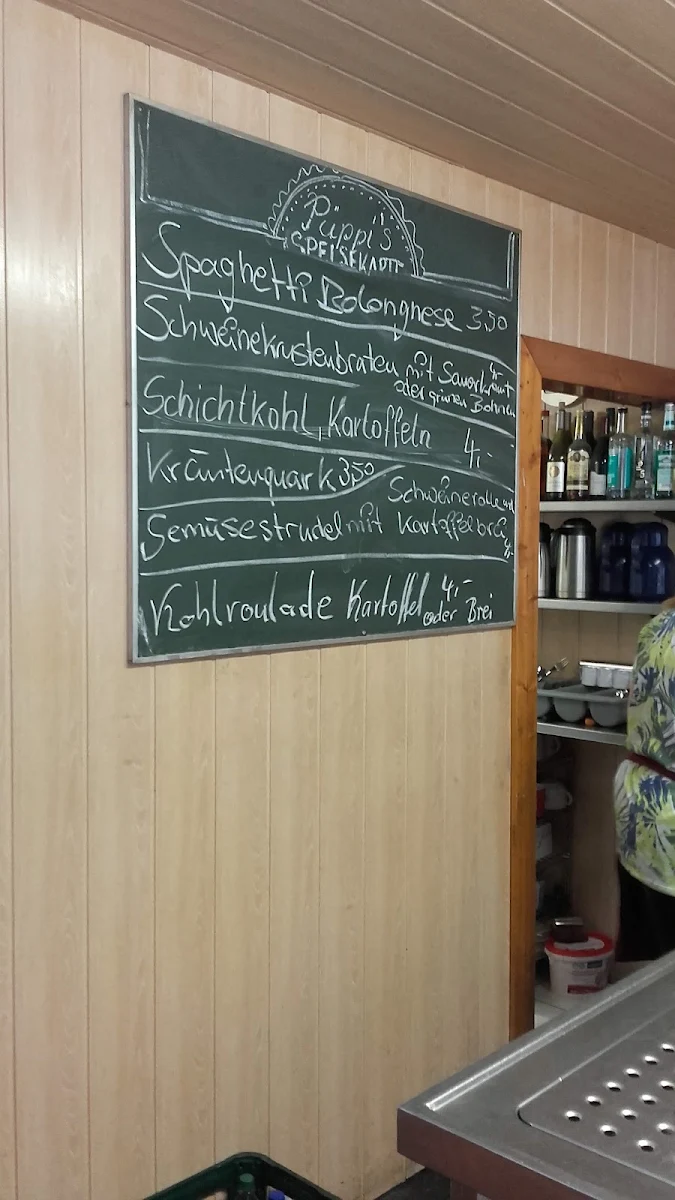 Püppi's
SPEISEKARTE
Spaghetti Bolongnese 3,50
Schweinekrustenbraten mit Sauerkraut 4,-
oder grünen Bohnen
Schichtkohl, Kartoffeln 4,-
Kräuterquark 3,50
Schweinerolle und
Gemüsestrudel mit Kartoffelbrei 4,-
Kohlroulade Kartoffel 4,-
oder Brei